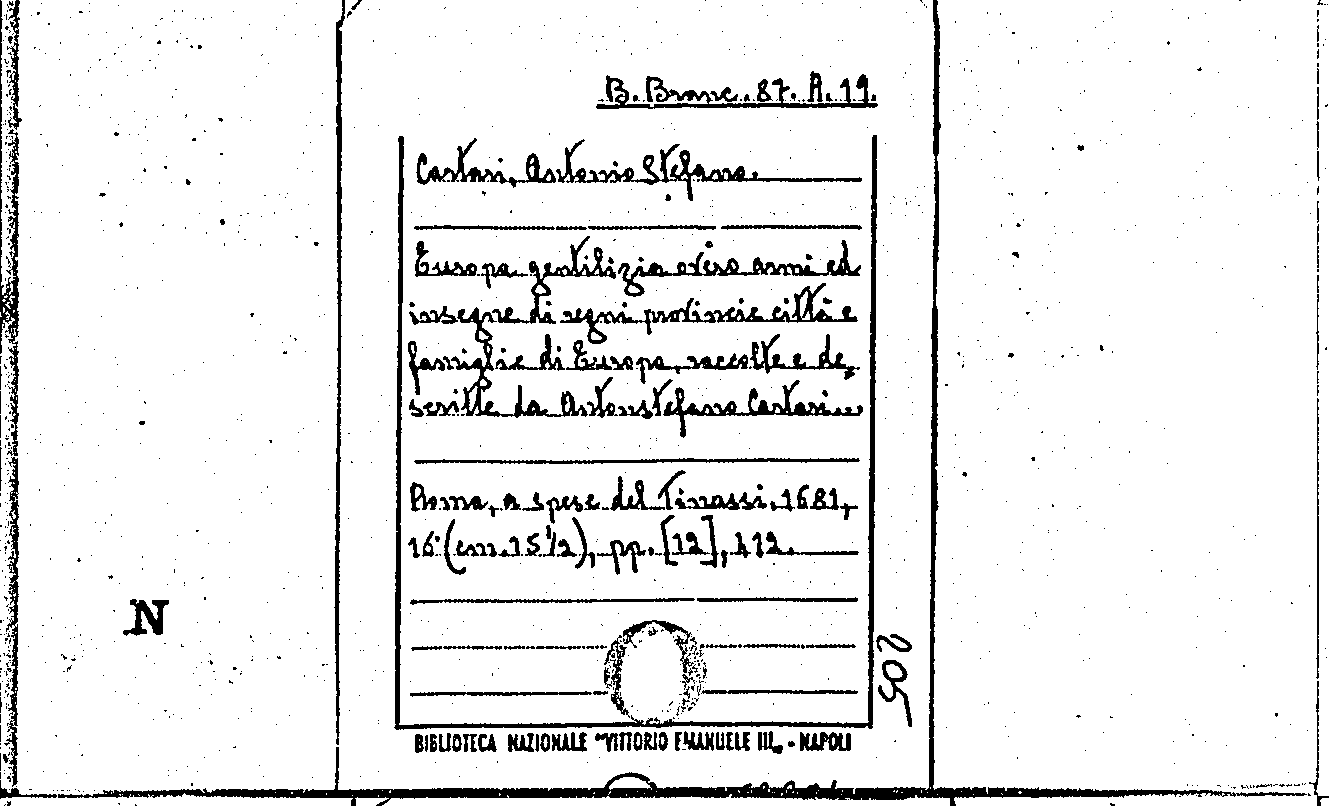 B. Branc. 87. A. 19.
Cartari, Antonio Stefano.
Europa gentilizia overo armi ed
insegne di regni provincie città e
famiglie di Europa, raccolte e de,
scritte da Antonstefano Cartari...
Roma, a spese del Tinassi, 1681,
16° (cm. 15 1/2), pp. [12], 412.
N
502
BIBLIOTECA NAZIONALE "VITTORIO EMANUELE III„ - NAPOLI